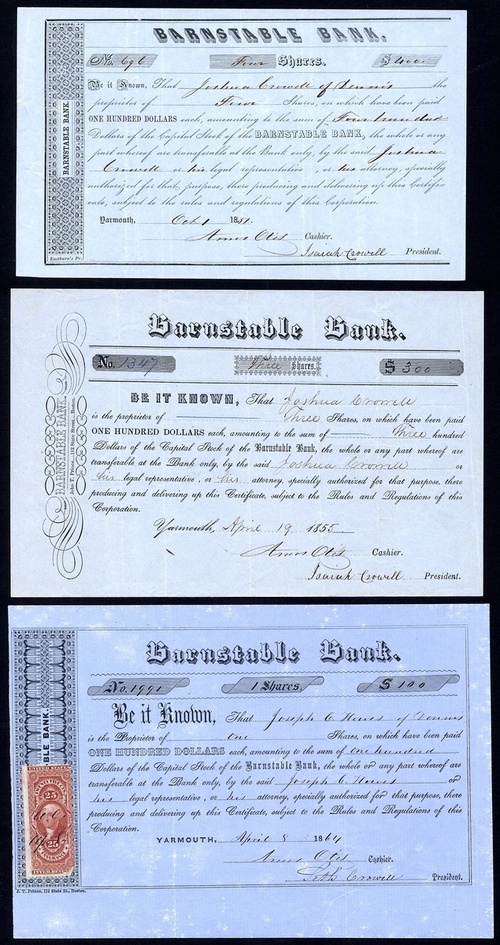 BARNSTABLE BANK.
No. 696 Four Shares. $ 400
Be it Known, That Joshua Crowell of Dennis the
proprietor of Four Shares, on which have been paid
ONE HUNDRED DOLLARS each, amounting to the sum of Four hundred
Dollars of the Capital Stock of the BARNSTABLE BANK, the whole or any
part whereof are transferable at the Bank only, by the said Joshua
Crowell or his legal representative, or his attorney, specially
authorized for that purpose, there producing and delivering up this Certifi-
cate, subject to the rules and regulations of this Corporation.
Yarmouth, Oct 1 1851.
Amos Otis Cashier.
Isaiah Crowell President.
BARNSTABLE BANK.
Eastburn's Pr.
Barnstable Bank.
No. 1347 Three Shares. $ 300
BE IT KNOWN, That Joshua Crowell
is the proprietor of Three Shares, on which have been paid
ONE HUNDRED DOLLARS each, amounting to the sum of Three hundred
Dollars of the Capital Stock of the Barnstable Bank, the whole or any part whereof are
transferable at the Bank only, by the said Joshua Crowell or
his legal representative, or his attorney, specially authorized for that purpose, there
producing and delivering up this Certificate, subject to the Rules and Regulations of this
Corporation.
Yarmouth, April 19 1855
Amos Otis Cashier.
Isaiah Crowell President.
BARNSTABLE BANK.
Barnstable Bank.
No. 1991 1 Shares. $ 100
Be it Known, That Joseph C. Howes of Dennis
is the Proprietor of one Shares, on which have been paid
ONE HUNDRED DOLLARS each, amounting to the sum of one hundred
Dollars of the Capital Stock of the Barnstable Bank, the whole or any part whereof are
transferable at the Bank only, by the said Joseph C. Howes or
his legal representative, or his attorney, specially authorized for that purpose, there
producing and delivering up this Certificate, subject to the Rules and Regulations of this
Corporation.
YARMOUTH, April 8 1864
Amos Otis Cashier.
Seth Crowell President.
BLE BANK.
25
25